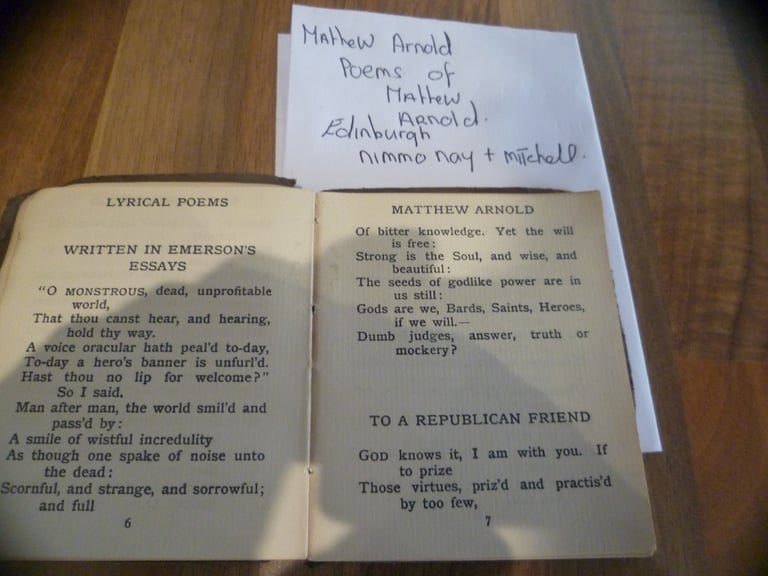 Mathew Arnold
Poems of
Mathew
Arnold.
Edinburgh
nimmo nay + mitchell.
LYRICAL POEMS
WRITTEN IN EMERSON'S
ESSAYS
"O MONSTROUS, dead, unprofitable
world,
That thou canst hear, and hearing,
hold thy way.
A voice oracular hath peal'd to-day,
To-day a hero's banner is unfurl'd.
Hast thou no lip for welcome?"
So I said.
Man after man, the world smil'd and
pass'd by:
A smile of wistful incredulity
As though one spake of noise unto
the dead:
Scornful, and strange, and sorrowful;
and full
6
MATTHEW ARNOLD
Of bitter knowledge. Yet the will
is free:
Strong is the Soul, and wise, and
beautiful:
The seeds of godlike power are in
us still:
Gods are we, Bards, Saints, Heroes,
if we will.—
Dumb judges, answer, truth or
mockery?
TO A REPUBLICAN FRIEND
GOD knows it, I am with you. If
to prize
Those virtues, priz'd and practis'd
by too few,
7